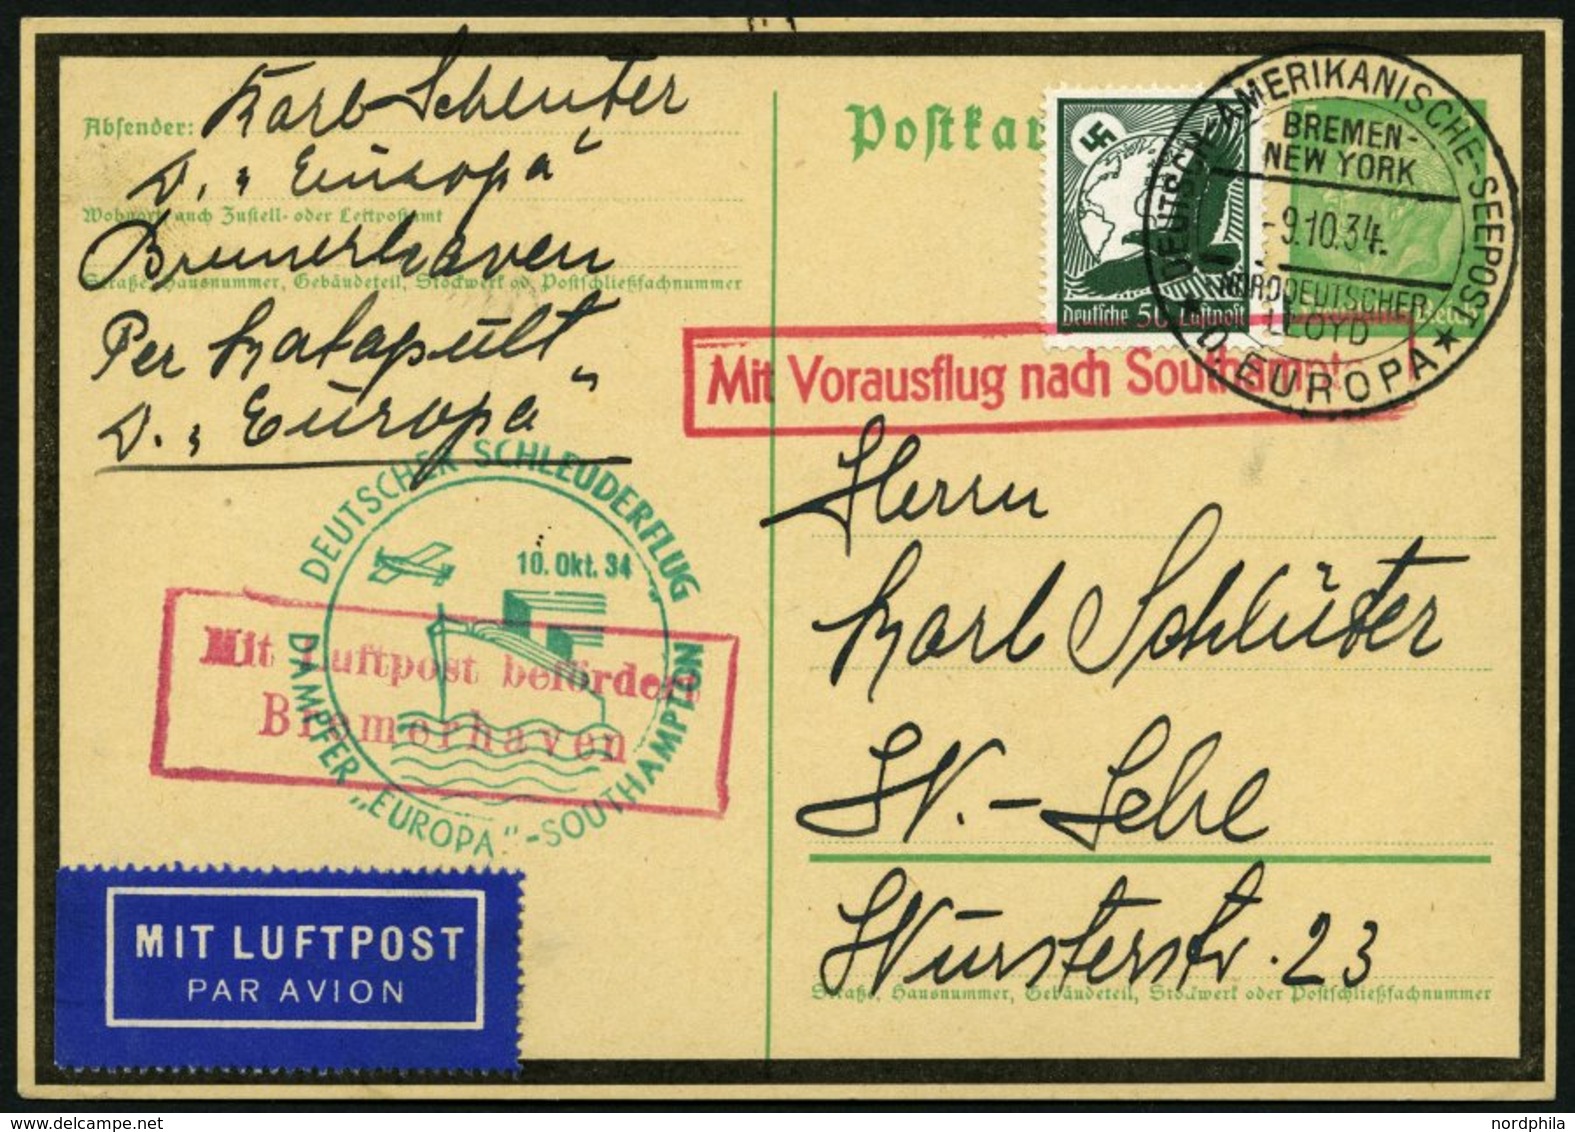 Absender: Karl Schlüter
D. „Europa“
Wohnort, auch Zustell- oder Leitpostamt
Bremerhaven
Straße, Hausnummer, Gebäudeteil, Stockwerk od. Postschließfachnummer
Per Katapult
D. „Europa“
DEUTSCHER SCHLEUDERFLUG
10. Okt. 34
DAMPFER „EUROPA“-SOUTHAMPTON
Mit Luftpost befördert
Bremerhaven
MIT LUFTPOST
PAR AVION
Postkar
Deutsche 50 Luftpost
DEUTSCH-AMERIKANISCHE-SEEPOST
BREMEN-
NEW YORK
-9.10.34
NORDDEUTSCHER
LLOYD
★ D. EUROPA ★
Mit Vorausflug nach Southampton
Herrn
Karl Schlüter
W.-Lehe
Wursterstr. 23
Straße, Hausnummer, Gebäudeteil, Stockwerk oder Postschließfachnummer
nordphila